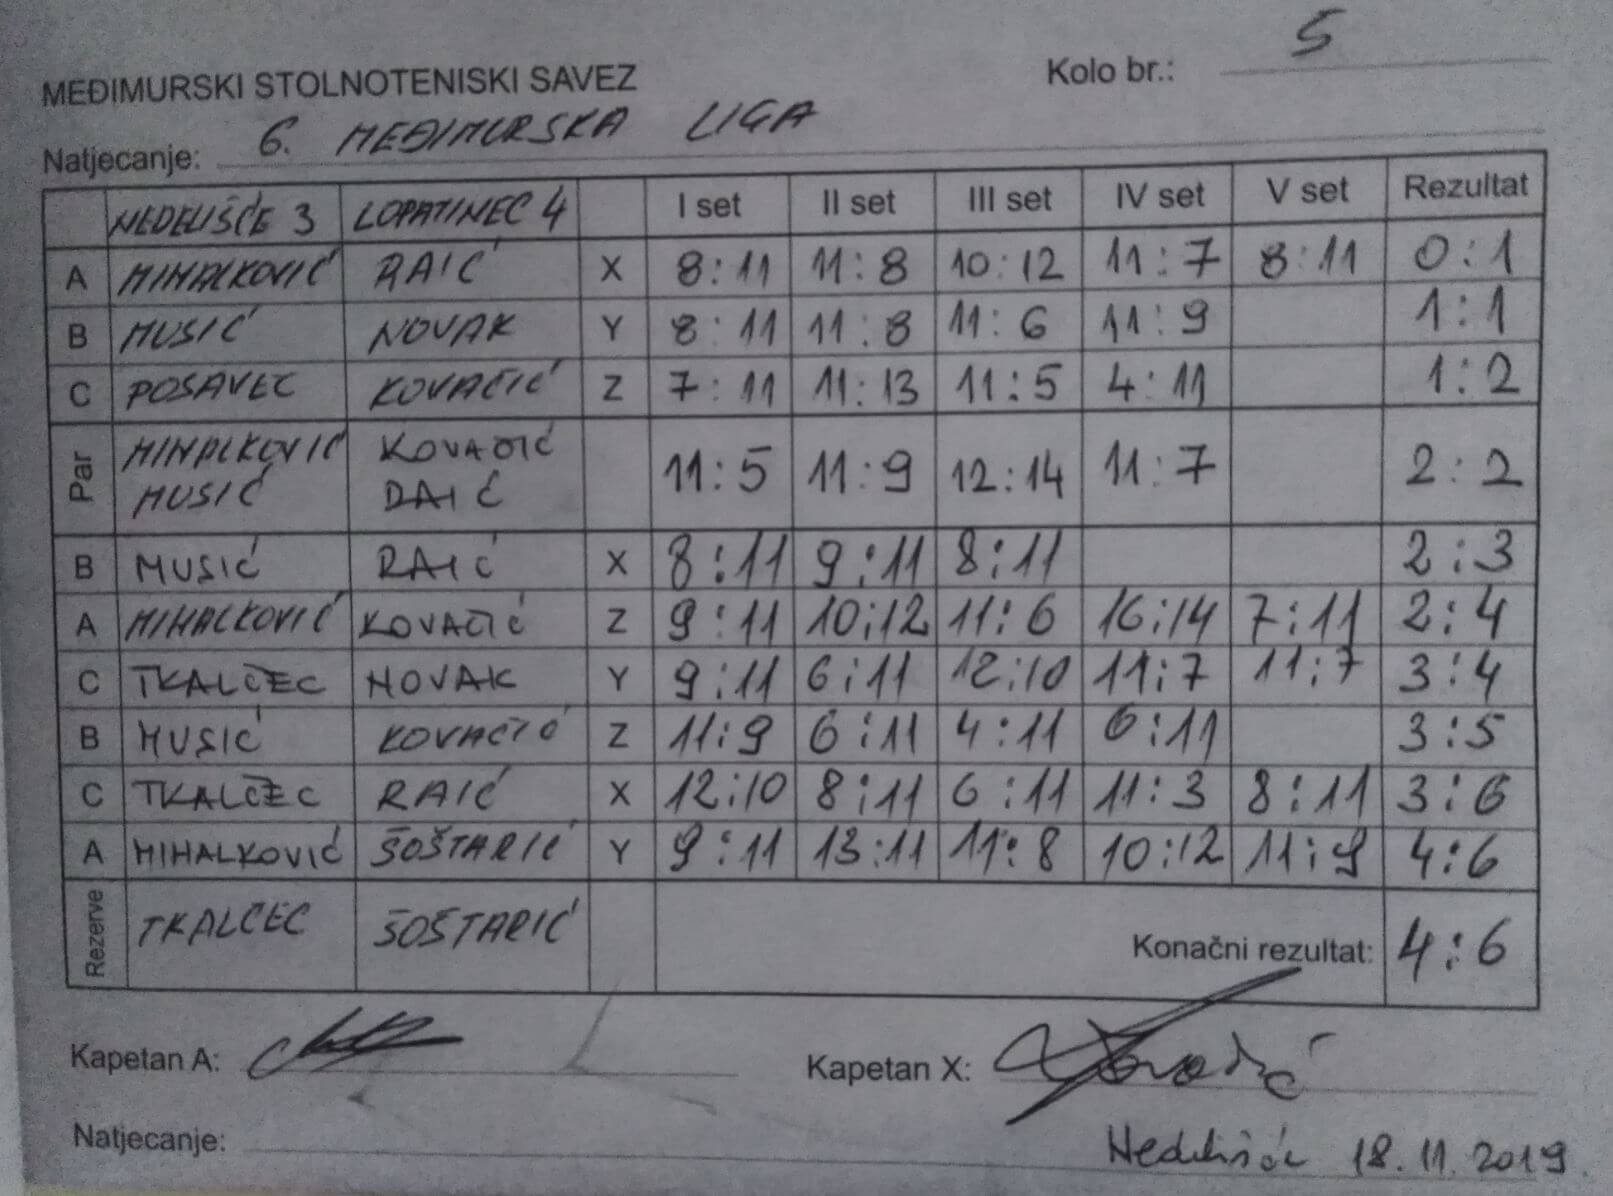 Kolo br.: 5
MEĐIMURSKI STOLNOTENISKI SAVEZ
Natjecanje: 6. MEĐIMURSKA LIGA
NEDELIŠĆE 3 LOPATINEC 4 I set II set III set IV set V set Rezultat
A MIHALKOVIĆ RAIĆ X 8:11 11:8 10:12 11:7 8:11 0:1
B MUSIĆ NOVAK Y 8:11 11:8 11:6 11:9 1:1
C POSAVEC KOVAČIĆ Z 7:11 11:13 11:5 4:11 1:2
Par MIHALKOVIĆ MUSIĆ KOVAČIĆ RAIĆ 11:5 11:9 12:14 11:7 2:2
B MUSIĆ RAIĆ X 8:11 9:11 8:11 2:3
A MIHALKOVIĆ KOVAČIĆ Z 9:11 10:12 11:6 16:14 7:11 2:4
C TKALČEC NOVAK Y 9:11 6:11 12:10 11:7 11:7 3:4
B MUSIĆ KOVAČIĆ Z 11:9 6:11 4:11 6:11 3:5
C TKALČEC RAIĆ X 12:10 8:11 6:11 11:3 8:11 3:6
A MIHALKOVIĆ ŠOŠTARIĆ Y 9:11 13:11 11:8 10:12 11:9 4:6
Rezerve TKALČEC ŠOŠTARIĆ Konačni rezultat: 4:6
Kapetan A: Kapetan X:
Natjecanje: Nedelišće 18.11.2019.